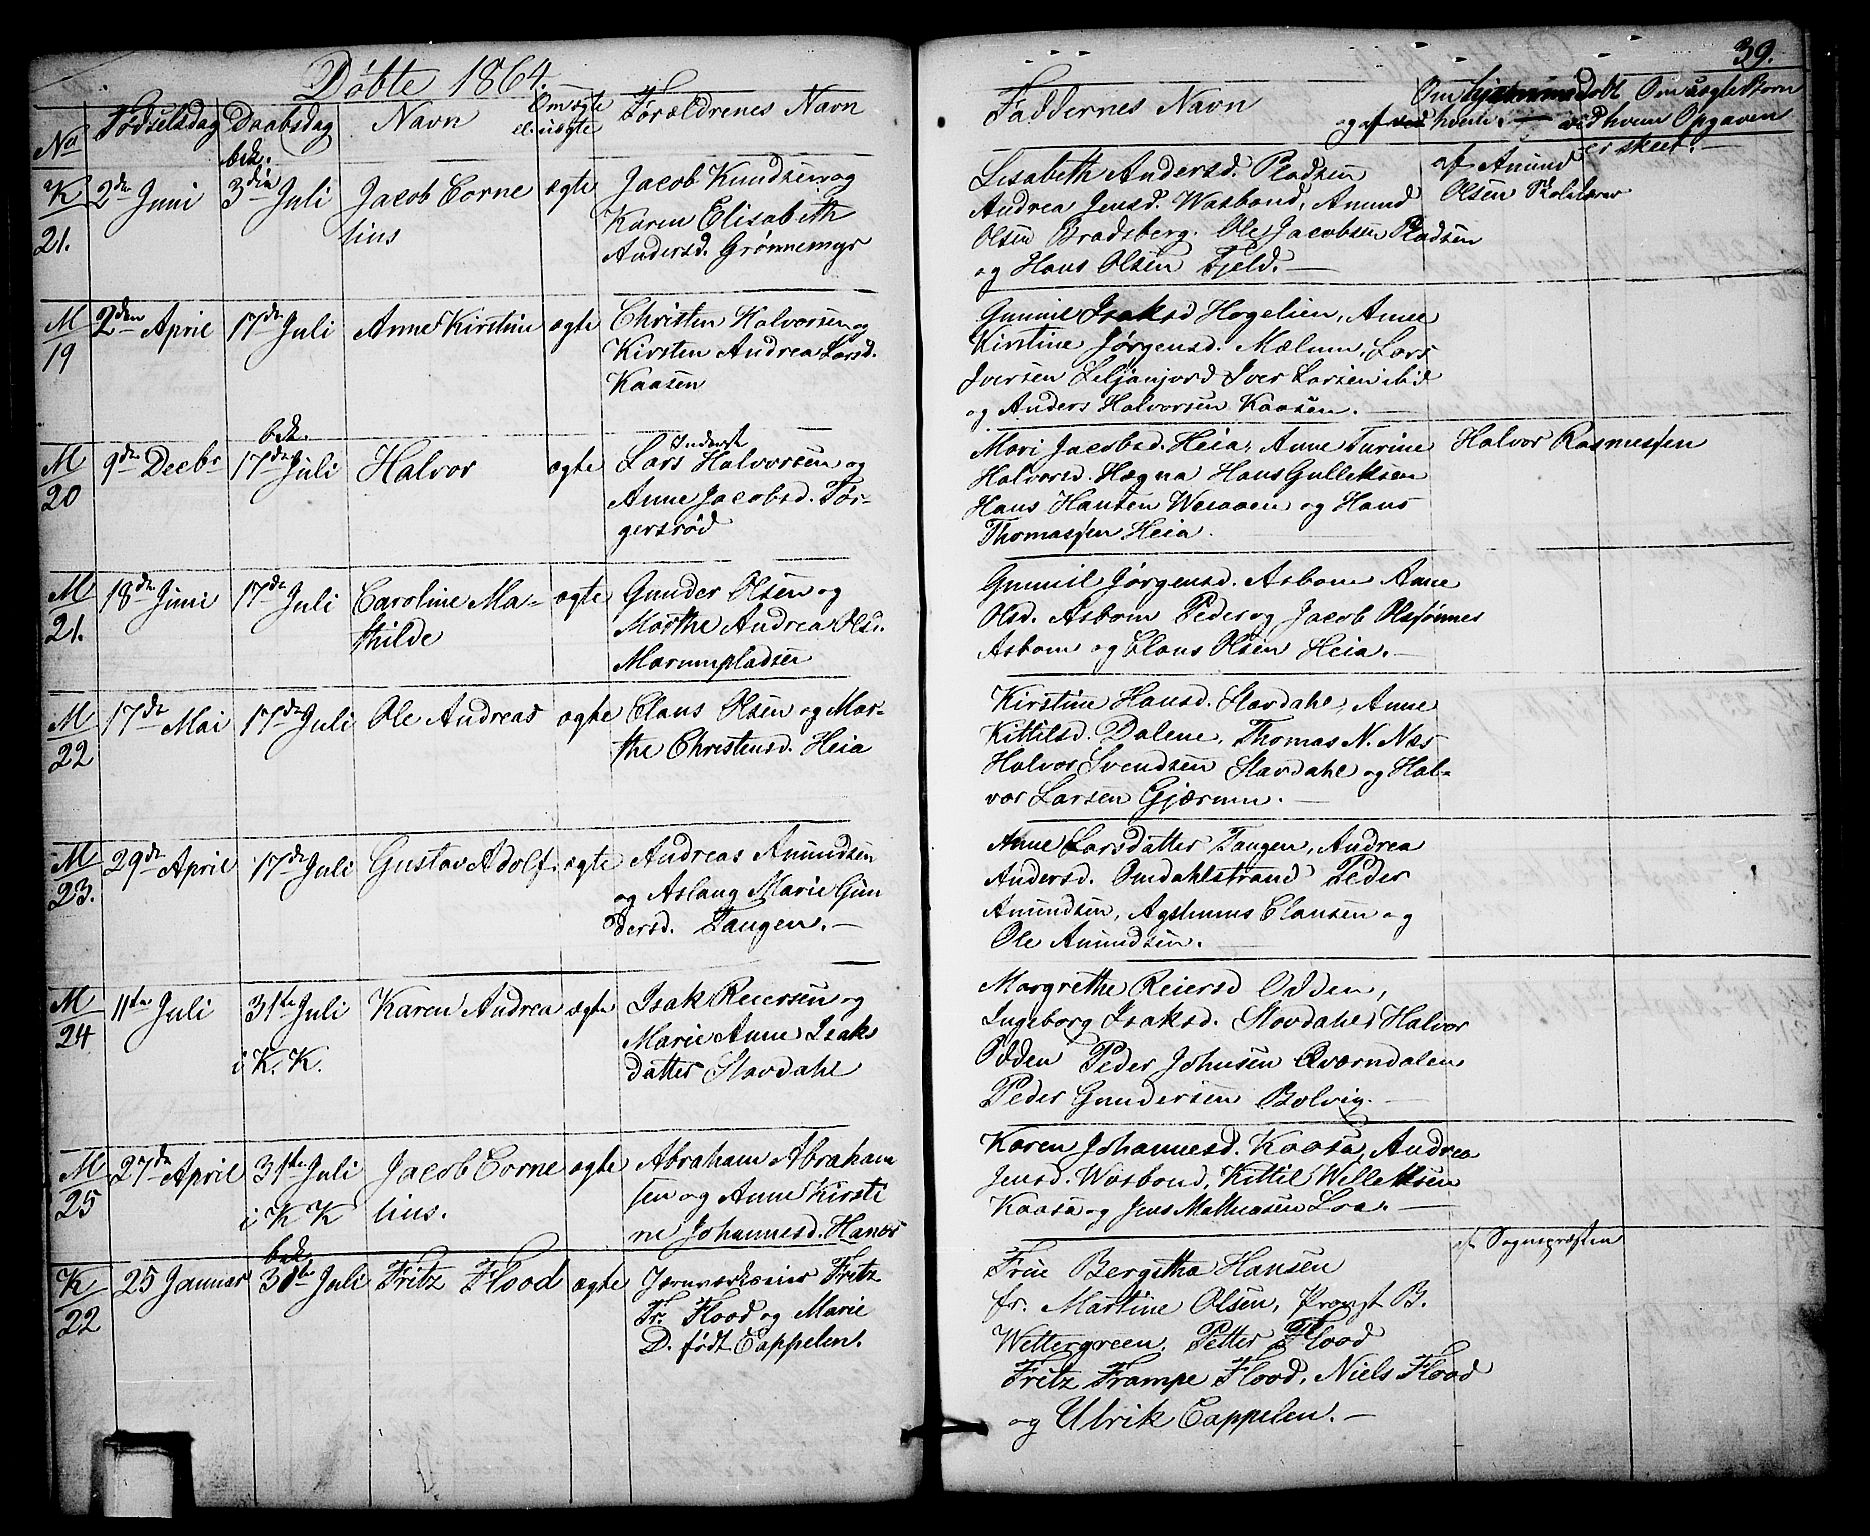 Døbte 1864.
39.
No
Fødselsdag
Daabsdag
Navn
Om ægte
el. uægte
Forældrenes Navn
Faddernes Navn
Om hjemmedøbt
og af hvem. —
Om uægte Børn
ved hvem Opgaven
er skeet. —
K
21.
2den Juni
bek.
3die Juli
Jacob Corne
lius
ægte
Jacob Knudsen og
Karen Elisabeth
Andersd. Grønnemyr
Lisabeth Andersd. Pladsen
Andrea Jensd. Wasbond, Amund
Olsen Bradsberg. Ole Jacobsen Pladsen
og Hans Olsen Fjeld. —
af Amund
Olsen Skolelærer
M
19
2den April
17de Juli
Anne Kirstine
ægte
Christen Halvorsen og
Kirsten Andrea Larsd.
Kaasen
Gunnil Isaksd Hogelien, Anne
Kirstine Jørgensd. Mælum, Lars
Iversen Liljanjord Iver Larsen ibid
og Anders Halvorsen Kaasen. —
M
20
9de Decbr
bek.
17de Juli
Halvor
ægte
Inderst
Lars Halvorsen og
Anne Jacobsd. Tor-
gersrød
Mari Jacobsd. Heia, Anne Turine
Halvorsd. Hægna Hans Gulleksen
Hans Hansen og Hans
Thomassen Heia.
Halvor Rasmussen
M
21.
18de Juni
17de Juli
Caroline Ma-
thilde
ægte
Gunder Olsen og
Marthe Andrea Olsd.
Marumpladsen
Gunnil Jørgensd. Asbom Anne
Olsd. Asbom Peder og Jacob Olsønner
Asbom og Claus Olsen Heia. —
M
22
17de Mai
17de Juli
Ole Andreas
ægte
Claus Olsen og Mar-
the Christensd. Heia
Kirstine Hansd. Stavdahl, Anne
Kittilsd. Dalene, Thomas N. Næs
Halvor Svendsen Stavdahl og Hal-
vor Larsen Gjærum. —
M
23.
29de April
17de Juli
Gustav Adolf
ægte
Andreas Amundsen
og Aslaug Marie Gun
dersd. Tangen. —
Anne Larsdatter Tangen, Andrea
Andersd. Omdahlstrand Peder
Amundsen, Clausen og
Ole Amundsen. —
M
24
11te Juli
31te Juli
i K. K.
Karen Andrea
ægte
Isak Reiersen og
Marie Anne Isaks
datter Stavdahl
Margrethe Reiersd Odden,
Ingeborg Isaksd. Stavdahl, Halvor
Odden Peder Johnsen Qværndalen
Peder Gundersen Bolvig. —
M
25
27de April
31te Juli
i K K
Jacob Corne
lius.
ægte
Abraham Abraham
sen og Anne Kirsti
ne Johannesd. Hanes
Karen Johannesd. Kaasa, Andrea
Jensd. Wasbond, Kittil Welleksen
Kaasa og Jens Mathiasen Loa. —
K
22
25 Januar
bek.
31te Juli
Fritz Flood
ægte
Jernværkseier Fritz
Fr. Flood og Marie
D. født Cappelen.
Frue Bergitha Hansen
fr. Martine Olsen, Provst B.
Wettergreen, Petter Flood
Fritz Frampe Flood, Niels Flood
og Ulrik Cappelen. —
af Sognepræsten